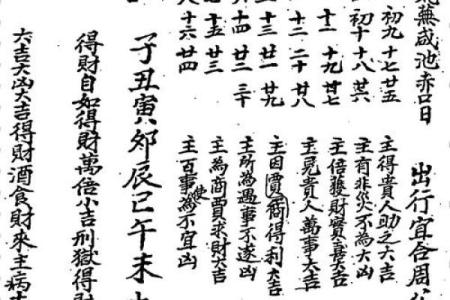 蕪咸池赤口日
出行宜合周公
初九 十七 廿五 主得貴人助之大吉
初十 十八 廿六 主有非災不為大凶
十一 十九 廿七 主倍獲財寶喜大吉
十二 二十 廿八 主見貴人萬事大吉
十三 廿一 廿九 主因賈商得利大吉
十四 廿二 三十 主所為過事不遂凶
十五 廿三 主為商賈求財大吉
十六 廿四 主百事使為不宜凶
子丑寅卯辰巳午未
得財自如得財萬倍小吉刑獄得財
六吉大凶大吉得財酒食財來主病